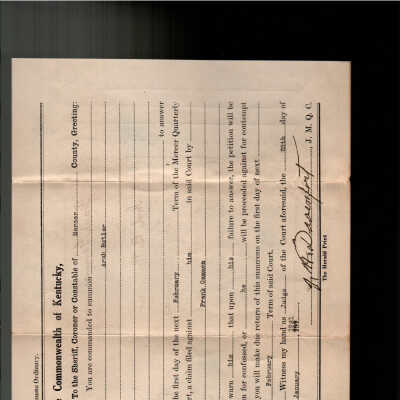 mons Ordinary.
Commonwealth of Kentucky,
To the Sheriff, Coroner or Constable of Mercer County, Greeting:
You are commanded to summon
Arch Butler
to answer
first day of the next February Term of the Mercer Quarterly
rt, a claim filed against him in said Court by
Frank
warn him that upon his failure to answer, the petition will be
n for confessed, or he will be proceeded against for contempt
you will make due return of this summons on the first day of next
February Term of said Court.
Witness my hand as Judge of the Court aforesaid, the day of
January
J. M. Q. C.
The Herald Print